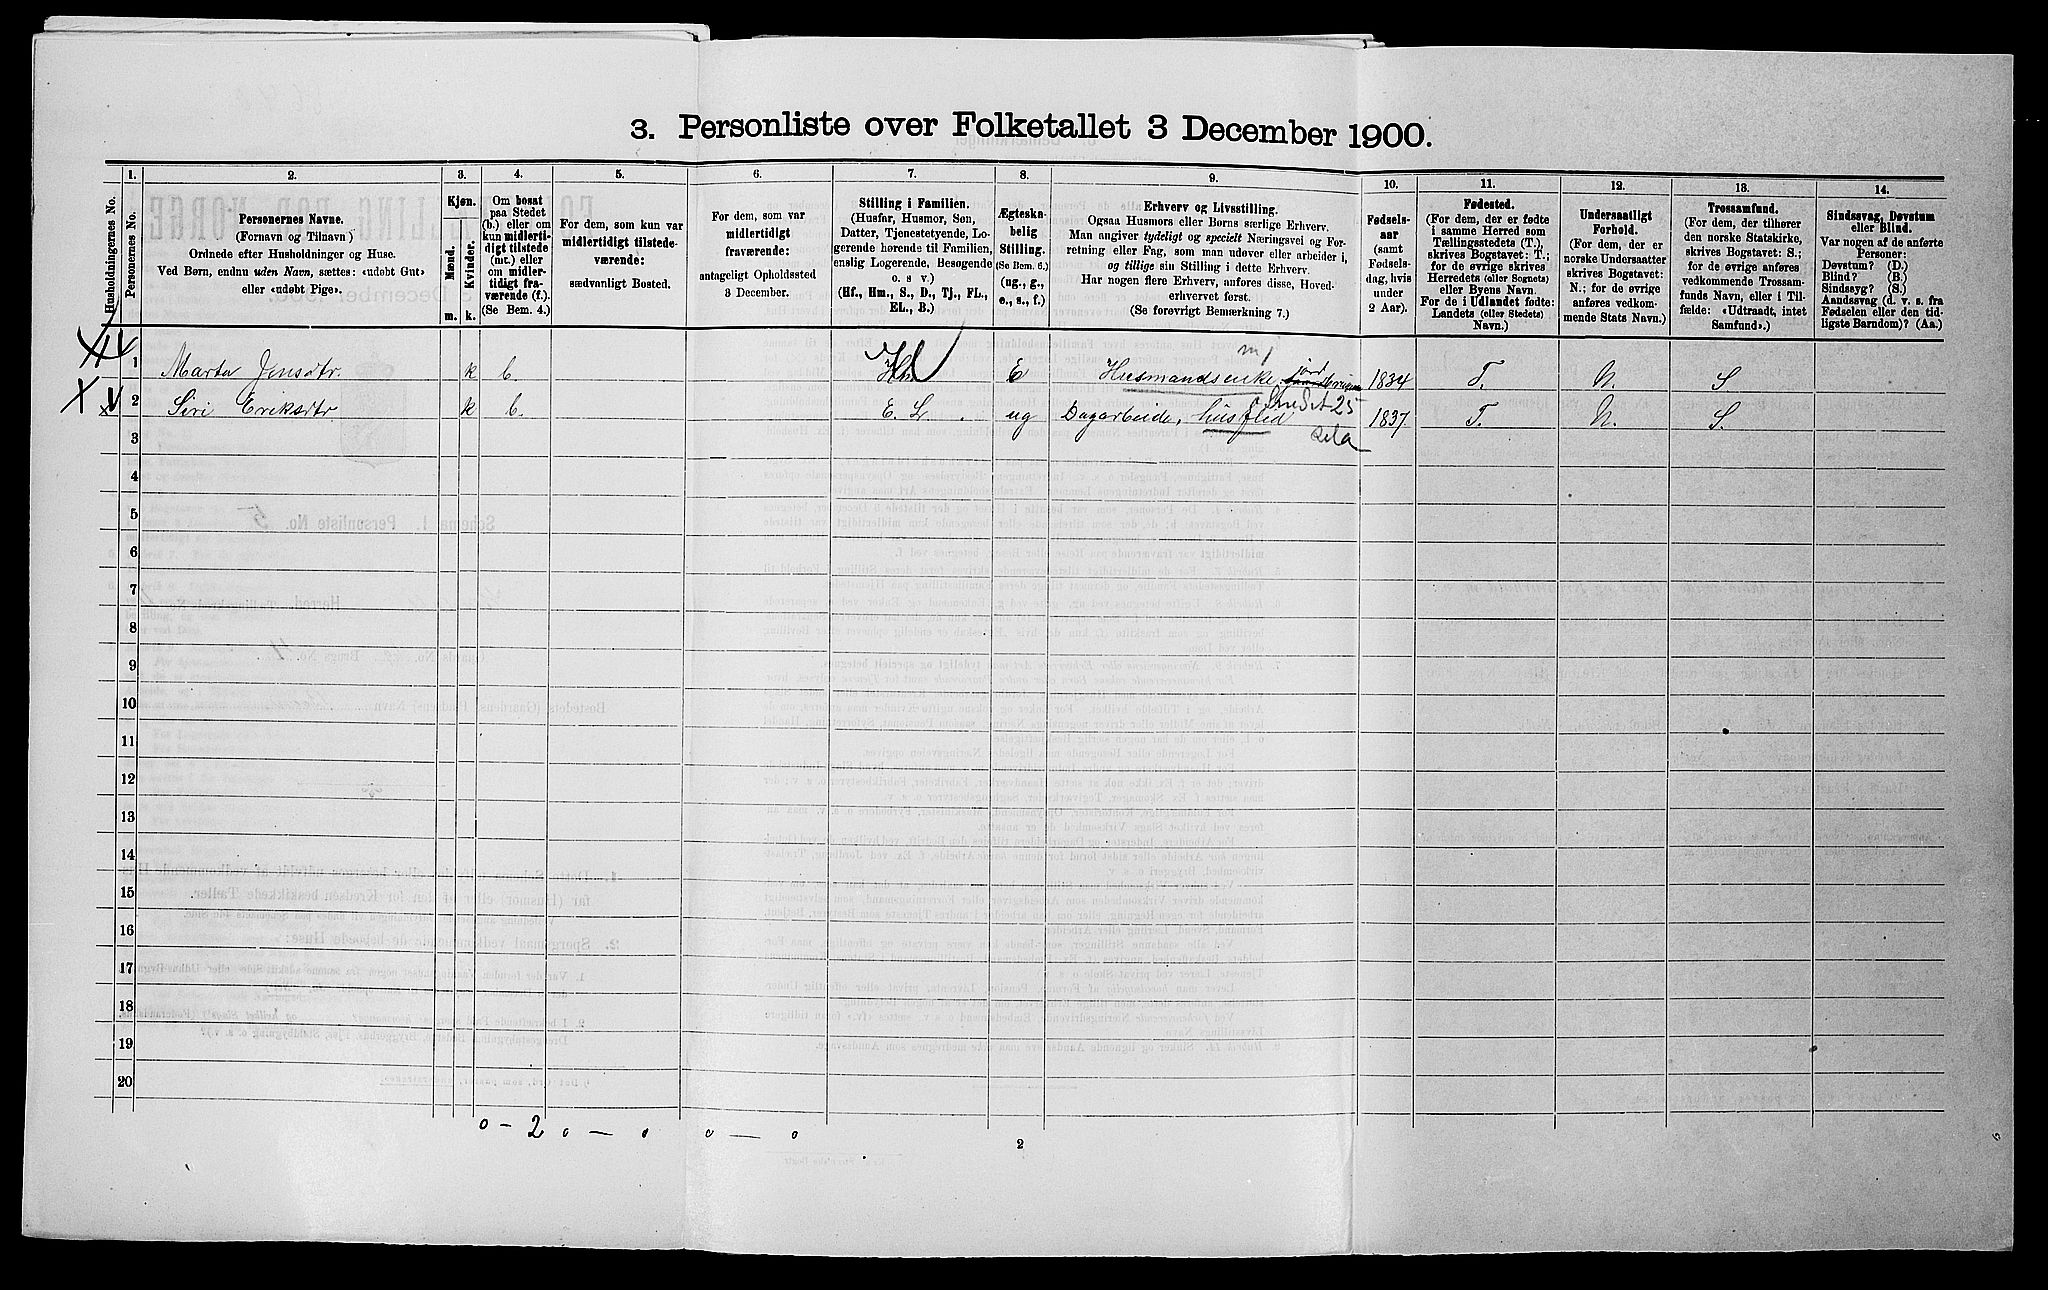 3. Personliste over Folketallet 3 December 1900.
1. 2. 3. 4. 5. 6. 7. 8. 9. 10. 11. 12. 13. 14.
Husholdningernes No.
Personernes No.
Personernes Navne.
(Fornavn og Tilnavn)
Ordnede efter Husholdninger og Huse.
Ved Børn, endnu uden Navn, sættes: «udøbt Gut»
eller «udøbt Pige».
Kjøn.
Mænd.
Kvinder.
m. k.
Om bosat
paa Stedet
(b.) eller om
kun midlerti-
digt tilstede
(mt.) eller
om midler-
tidigt fra-
værende (f.).
(Se Bem. 4.)
For dem, som kun var
midlertidigt tilstede-
værende:
sædvanligt Bosted.
For dem, som var
midlertidigt
fraværende:
antageligt Opholdssted
3 December.
Stilling i Familien.
(Husfar, Husmor, Søn,
Datter, Tjenestetyende, Lo-
gerende hørende til Familien,
enslig Logerende, Besøgende
o. s v.)
(Hf., Hm., S., D., Tj., FL.,
EL., B.)
Ægteska-
belig
Stilling.
(Se Bem. 6.)
(ug., g.,
e., s., f.)
Erhverv og Livsstilling.
Ogsaa Husmors eller Børns særlige Erhverv.
Man angiver tydeligt og specielt Næringsvei og For-
retning eller Fag, som man udøver eller arbeider i,
og tillige sin Stilling i dette Erhverv.
Har nogen flere Erhverv, anføres disse, Hoved-
erhvervet først.
(Se forøvrigt Bemærkning 7.)
Fødsels-
aar
(samt
Fødsels-
dag, hvis
under
2 Aar).
Fødested.
(For dem, der er fødte
i samme Herred som
Tællingsstedets (T.),
skrives Bogstavet: T.;
for de øvrige skrives
Herredets (eller Sognets)
eller Byens Navn.
For de i Udlandet fødte:
Landets (eller Stedets)
Navn.)
Undersaatligt
Forhold.
(For dem, der er
norske Undersaatter
skrives Bogstavet:
N.; for de øvrige
anføres vedkom-
mende Stats Navn.)
Trossamfund.
(For dem, der tilhører
den norske Statskirke,
skrives Bogstavet: S.;
for de øvrige anføres
vedkommende Trossam-
funds Navn, eller i Til-
fælde: «Udtraadt, intet
Samfund».)
Sindssvag, Døvstum
eller Blind.
Var nogen af de anførte
Personer:
Døvstum? (D.)
Blind? (B.)
Sindssyg? (S.)
Aandssvag (d. v. s. fra
Fødselen eller den tid-
ligste Barndom)? (Aa.)
1 Marta Jensdtr. k b. Hm E Husmandsenke, jord 1834 T. N. S
2 Siri Eriksdtr k b. E. L. ug Dagarbeide, husflid 1837. T. N. S.
3
4
5
6
7
8
9
10
11
12
13
14
15
16
17
18
19
20
0 – 2 0 – 0 0 – 0
2